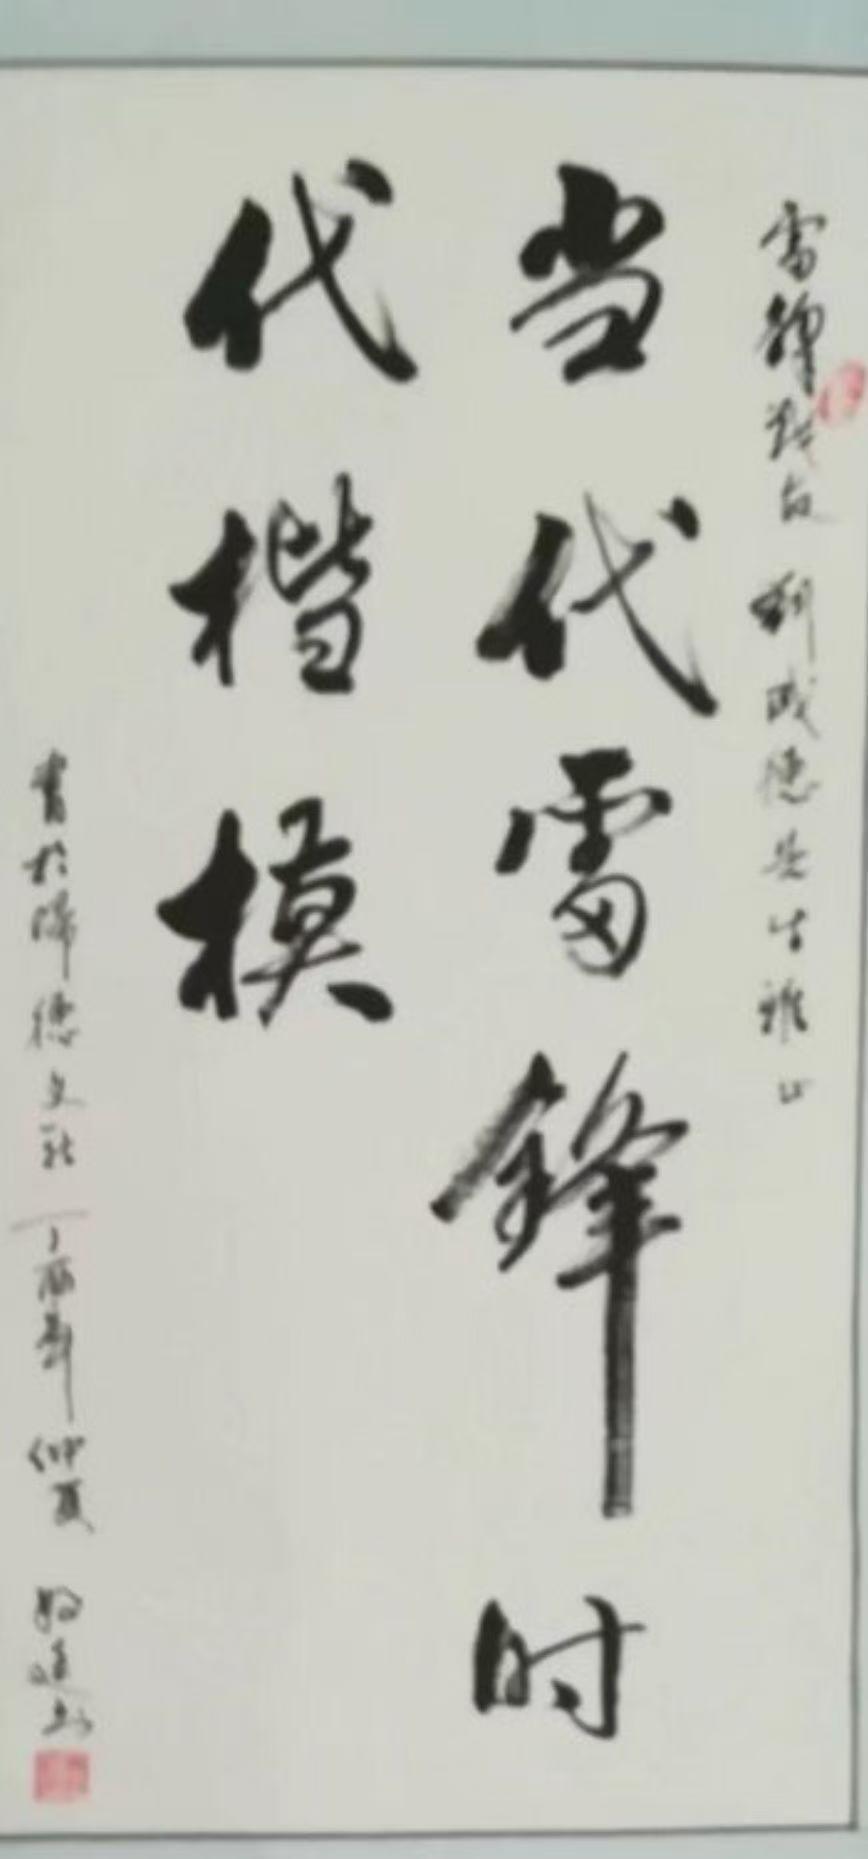 雷锋战友 刘成德先生雅正
当代雷锋时
代楷模
书於归德文社 丁酉年仲夏